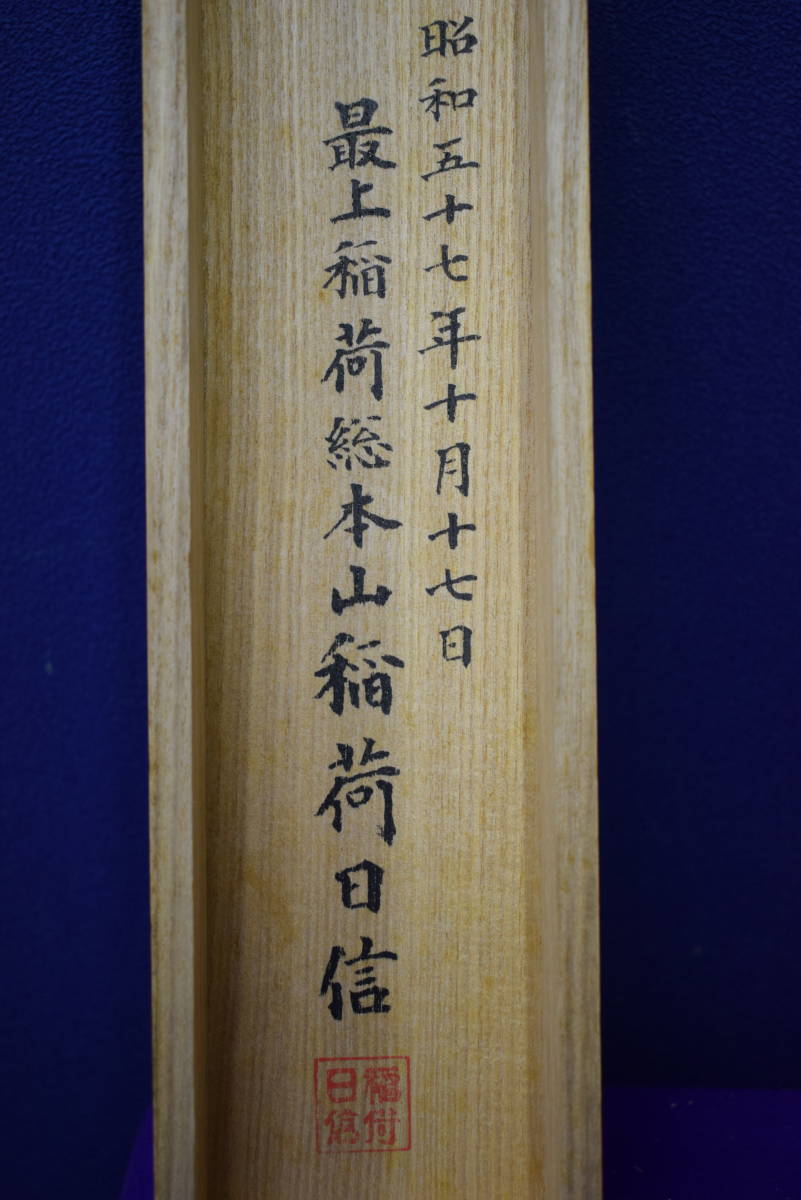 昭和五十七年十月十七日
最上稲荷総本山稲荷日信
稲荷
日信